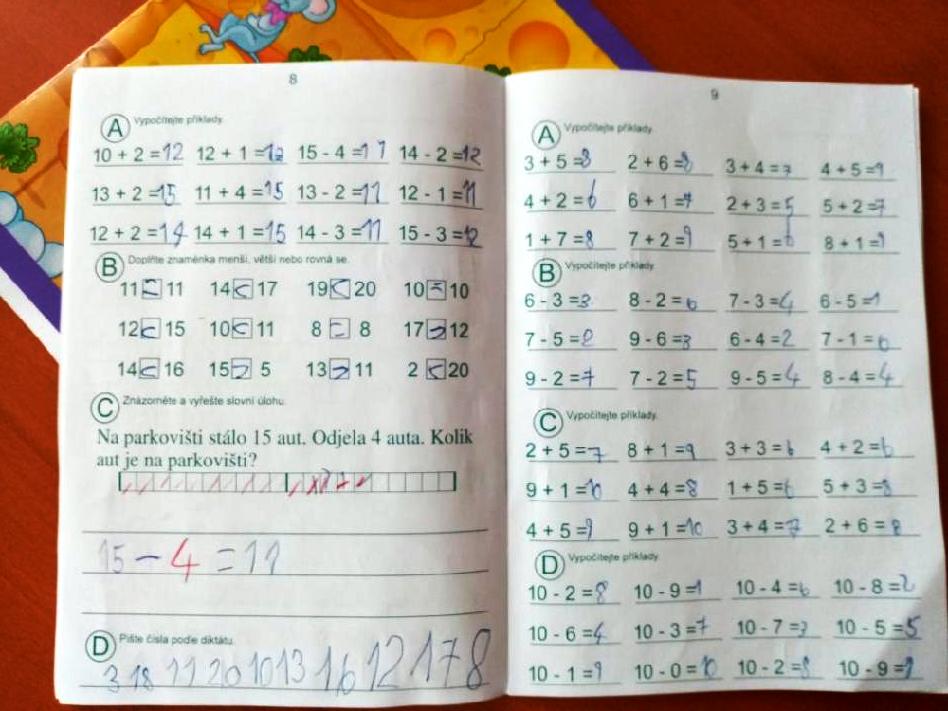 8
A Vypočítejte příklady.
10 + 2 =12 12 + 1 =13 15 - 4 =11 14 - 2 =12
13 + 2 =15 11 + 4 =15 13 - 2 =11 12 - 1 =11
12 + 2 =14 14 + 1 =15 14 - 3 =11 15 - 3 =12
B Doplňte znaménka menší, větší nebo rovná se.
11 = 11 14 < 17 19 < 20 10 = 10
12 < 15 10 < 11 8 = 8 17 > 12
14 < 16 15 > 5 13 > 11 2 < 20
C Znázorněte a vyřešte slovní úlohu.
Na parkovišti stálo 15 aut. Odjela 4 auta. Kolik
aut je na parkovišti?
15 - 4 = 11
D Pište čísla podle diktátu.
3 18 11 20 10 13 16 12 17 8
9
A Vypočítejte příklady.
3 + 5 =8 2 + 6 =8 3 + 4 =7 4 + 5 =9
4 + 2 =6 6 + 1 =7 2 + 3 =5 5 + 2 =7
1 + 7 =8 7 + 2 =9 5 + 1 =6 8 + 1 =9
B Vypočítejte příklady.
6 - 3 =3 8 - 2 =6 7 - 3 =4 6 - 5 =1
7 - 5 =2 9 - 6 =3 6 - 4 =2 7 - 1 =6
9 - 2 =7 7 - 2 =5 9 - 5 =4 8 - 4 =4
C Vypočítejte příklady.
2 + 5 =7 8 + 1 =9 3 + 3 =6 4 + 2 =6
9 + 1 =10 4 + 4 =8 1 + 5 =6 5 + 3 =8
4 + 5 =9 9 + 1 =10 3 + 4 =7 2 + 6 =8
D Vypočítejte příklady.
10 - 2 =8 10 - 9 =1 10 - 4 =6 10 - 8 =2
10 - 6 =4 10 - 3 =7 10 - 7 =3 10 - 5 =5
10 - 1 =9 10 - 0 =10 10 - 2 =8 10 - 9 =1